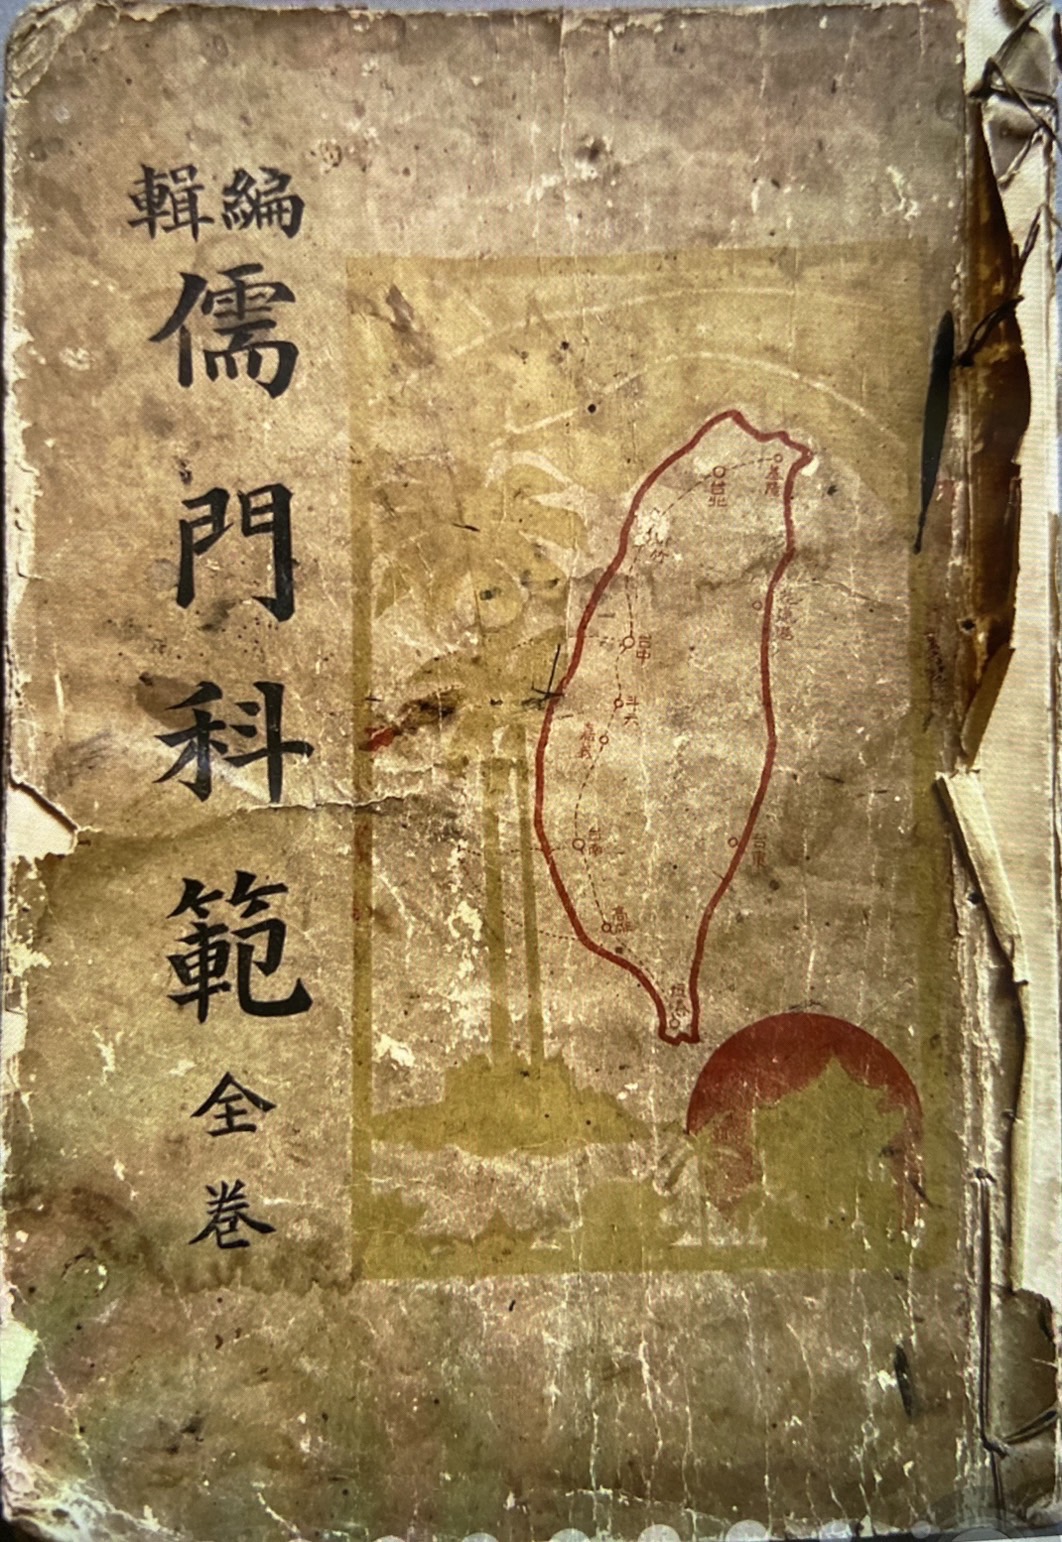 編輯
儒門科範
全卷
基隆
台北
新竹
台中
斗六
嘉義
台南
高雄
恒春
台東